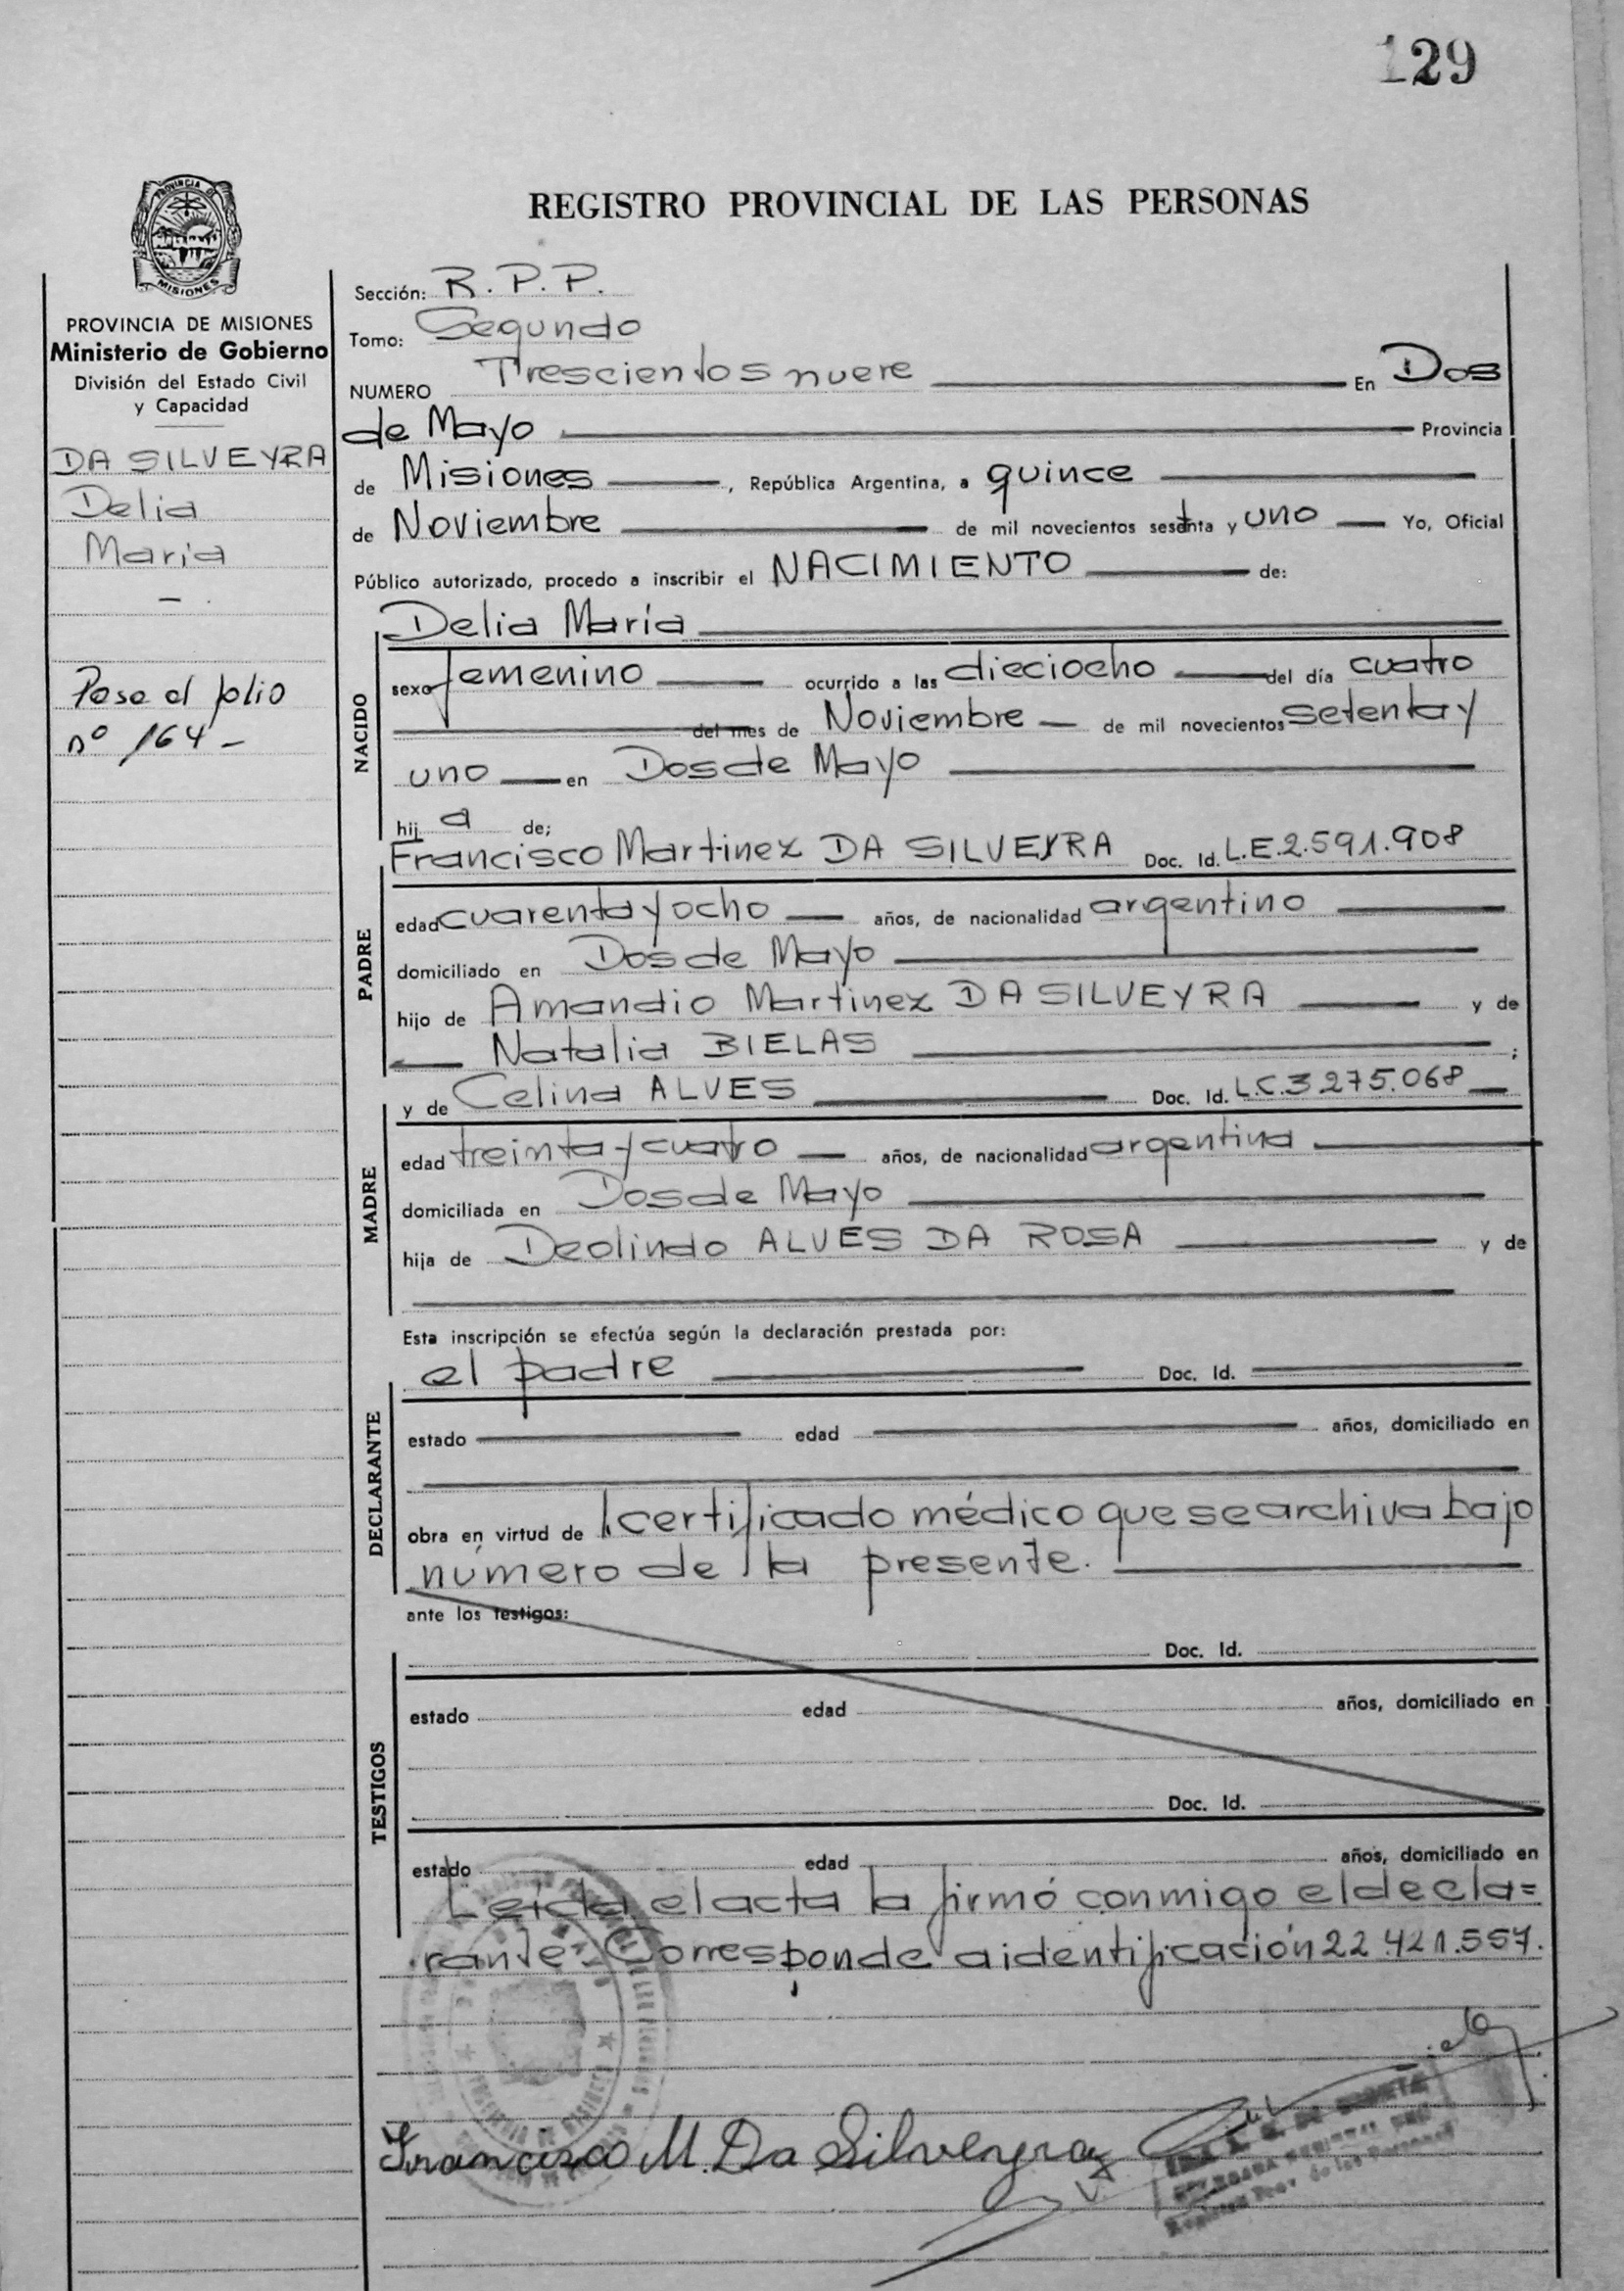 129
REGISTRO PROVINCIAL DE LAS PERSONAS
PROVINCIA DE MISIONES
PROVINCIA DE MISIONES
Ministerio de Gobierno
División del Estado Civil
y Capacidad
DA SILVEYRA
Delia
María
Pase al folio
nº 164 -
Sección: R.P.P.
Tomo: Segundo
NUMERO Trescientos nueve En Dos
de Mayo Provincia
de Misiones, República Argentina, a quince
de Noviembre de mil novecientos setenta y uno Yo, Oficial
Público autorizado, procedo a inscribir el NACIMIENTO de:
Delia María
NACIDO
sexo femenino ocurrido a las dieciocho del día cuatro
del mes de Noviembre de mil novecientos setenta y
uno en Dos de Mayo
hija de;
Francisco Martinez DA SILVEYRA Doc. Id. L.E.2.591.908
PADRE
edad cuarenta y ocho años, de nacionalidad argentino
domiciliado en Dos de Mayo
hijo de Amandio Martinez DA SILVEYRA y de
Natalia BIELAS ;
y de Celina ALVES Doc. Id. L.C.3275.068
MADRE
edad treinta y cuatro años, de nacionalidad argentina
domiciliada en Dos de Mayo
hija de Deolindo ALVES DA ROSA y de
Esta inscripción se efectúa según la declaración prestada por:
el padre Doc. Id.
DECLARANTE
estado edad años, domiciliado en
obra en virtud de l certificado médico que se archiva bajo
número de la presente.
ante los testigos:
Doc. Id.
TESTIGOS
estado edad años, domiciliado en
Doc. Id.
estado edad años, domiciliado en
Leída el acta la firmó conmigo el decla=
rante. Corresponde a identificación 22.421.557.
Francisco M. Da Silveyra